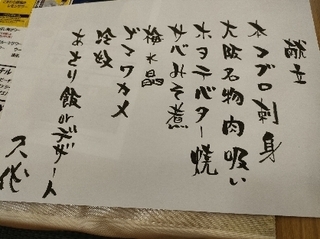 献立
本マグロ刺身
大阪名物肉吸い
ホタテバター焼
サバみそ煮
梅水晶
ゲソワカメ
冷奴
あさり飯orデザート
久代